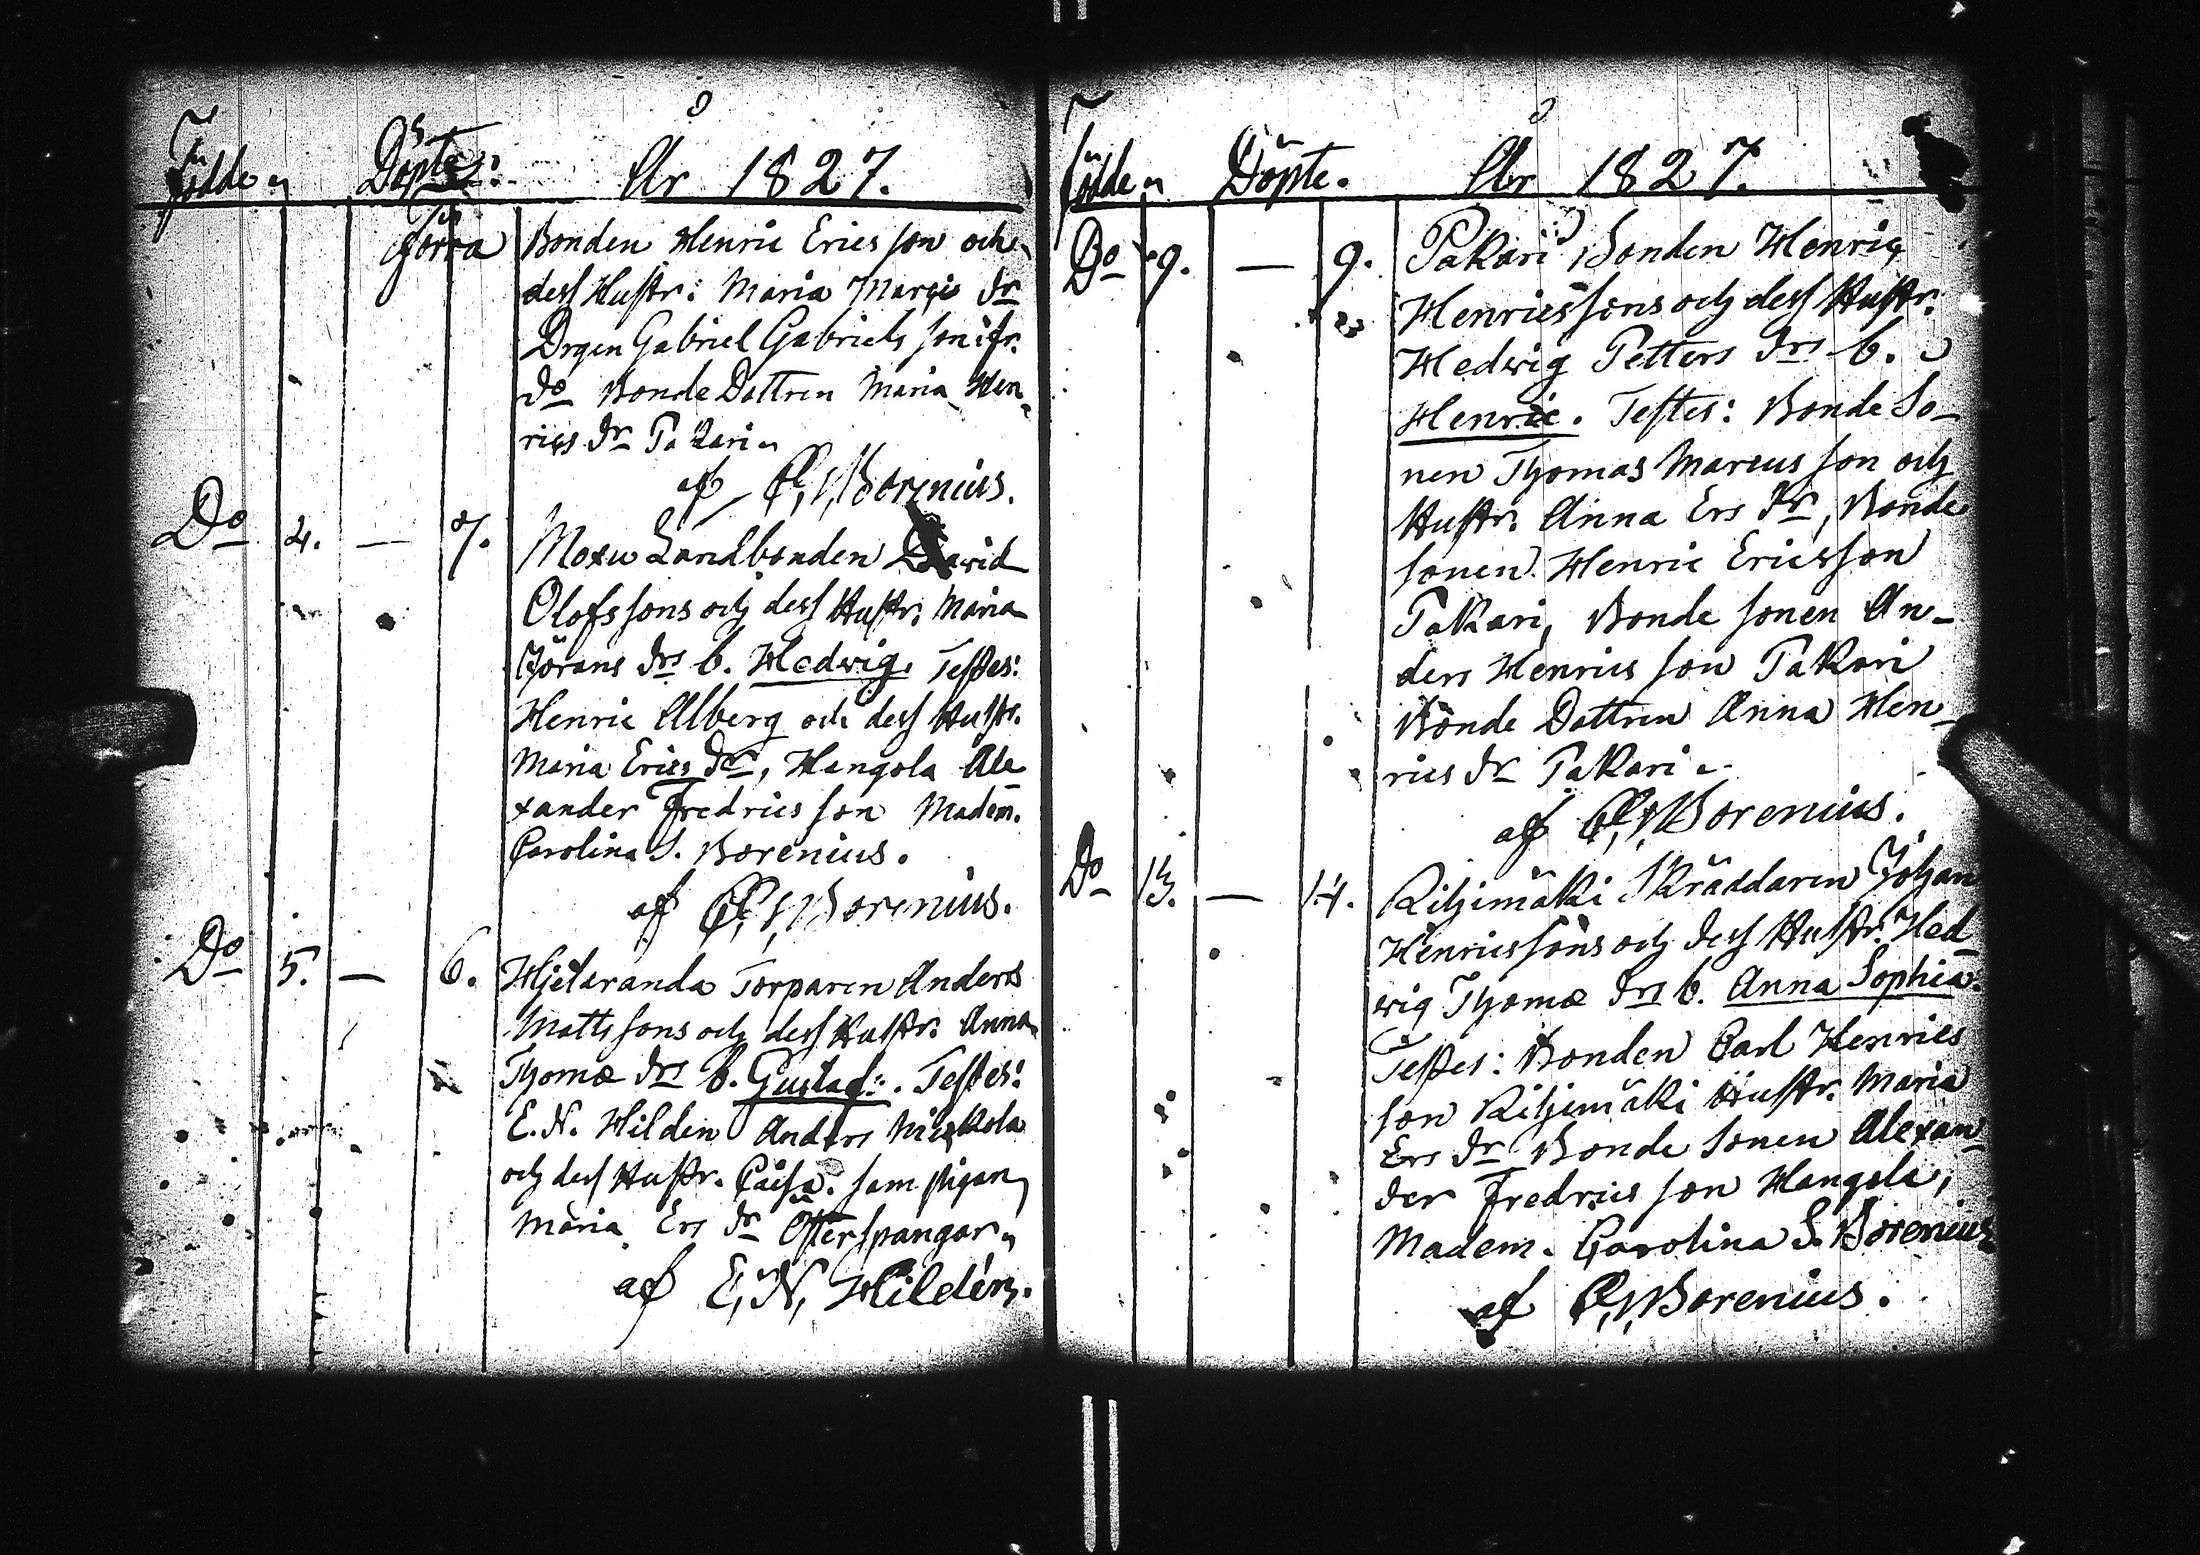 Födde Döpte: År 1827.
Förra Bonden Henric Ericsson och
dess Hustr: Maria Marci dr
Drgen Gabriel Gabriels son: fr.
do Bonde Dottren Maria Hen-
rics dr Pakari
af C. W. Borenius.
Do 4. — 7. Moxu Landbonden David
Olofssons och dess Hustr. Maria
Jörans drs b. Hedvig. Testes:
Henric Alberg och dess Hustr.
Maria Erics dr, Hangola Ale
xander Fredrics son Madem.
Carolina S. Borenius.
af C. W. Borenius.
Do 5. — 6. Hjetaranda Torparen Anders
Mattssons och dess Hustr. Anna
Thomæ drs b. Gustaf:. Testes:
E. N. Hildén Anders
och dess Hustr. Caisa. sam pigan
Maria Ers dr Österspangar
af E. N. Hildén.
Födde Döpte. År 1827.
Do 9. — 9. Pakari Bonden Henric
Henricssons och dess Hustr.
Hedvig Petters drs b.
Henric. Testes: Bonde So-
nen Thomas Marcus son och
Hustr. Anna Ers dr, Bonde
sonen Henric Ericsson
Pakari, Bonde sonen An-
ders Henrics son Pakari
Bonde Dottren Anna Hen-
rics dr Pakari
af C. W. Borenius.
Do 13. — 14. Rihimäki Skräddaren Johan
Henricssons och dess Hustr. Hed
vig Thomæ drs b. Anna Sophia.
Testes: Bonden Carl Henrics
son Rihimäki Hustr. Maria
Ers dr Bonde Sonen Alexan
der Fredrics son Hangola,
Madem. Carolina S. Borenius
af C. W. Borenius.